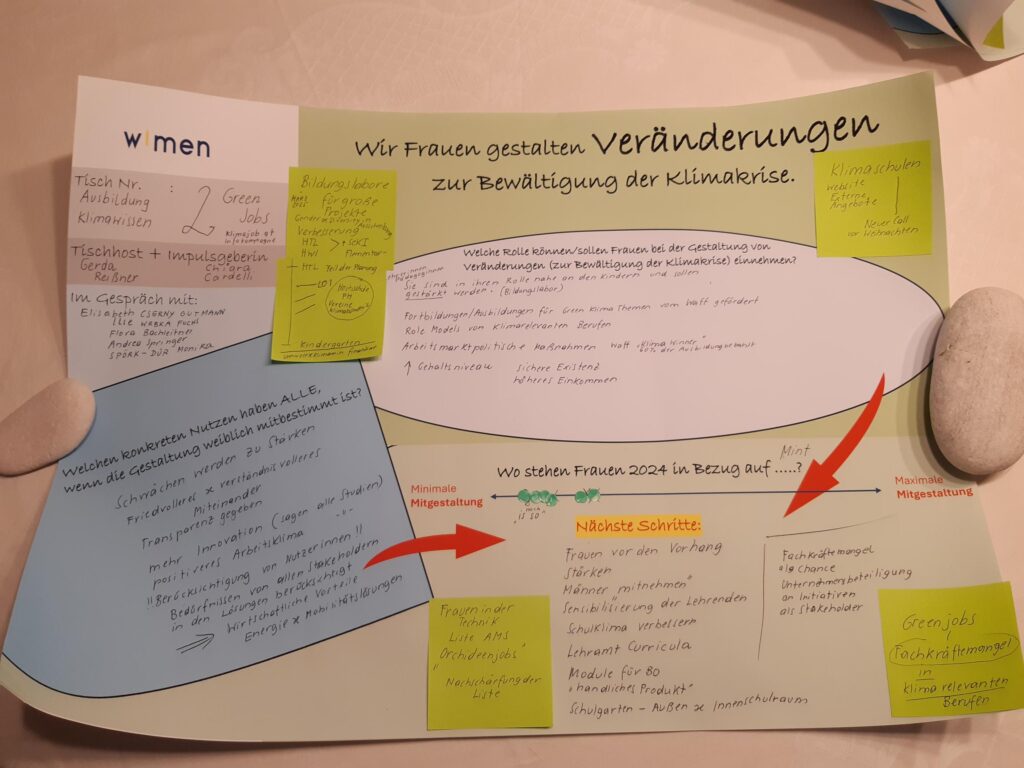 wImen
Wir Frauen gestalten Veränderungen
zur Bewältigung der Klimakrise.
Tisch Nr. : 2 Green
Ausbildung Jobs
Klimawissen Klimajob at
Tischhost + Impulsgeberin
Gerda Chiara
Reißner Cardelli
Im Gespräch mit:
Elisabeth CSERNY GUTMANN
Ilse WRBKA FUCHS
Flora Bachleitner
Andrea Springer
SPÖRK-DÜR Monika
Bildungslabore
für große
Projekte
Verbesserung
HTL
HWI
HTL Teil der Planung
PH
Vereine
Kindergarten
Klimaschulen
Website
Externe
Angebote
Neuer Call
vor Weihnachten
Welche Rolle können/sollen Frauen bei der Gestaltung von
Veränderungen (zur Bewältigung der Klimakrise) einnehmen?
Sie sind in ihren Rolle nahe an den Kindern und sollen
gestärkt werden. (Bildungslabor)
Fortbildungen/Ausbildungen für Green Klima Themen vom Waff gefördert
Role Models von Klimarelevanten Berufen
Arbeitsmarktpolitische Maßnahmen Waff „Klima Winner"
↑ Gehaltsniveau sichere Existenz
höheres Einkommen
Welchen konkreten Nutzen haben ALLE,
wenn die Gestaltung weiblich mitbestimmt ist?
Schwächen werden zu Stärken
Friedvolleres & verständnisvolleres
Miteinander
Transparenz gegeben
mehr Innovation (sagen alle Studien)
positiveres Arbeitsklima -"-
"Berücksichtigung von Nutzerinnen !!
Bedürfnissen von allen Stakeholdern
in den Lösungen berücksichtigt
⇒ Wirtschaftliche Vorteile
Energie & Mobilitätslösungen
Mint
Wo stehen Frauen 2024 in Bezug auf .....?
Minimale
Mitgestaltung
Maximale
Mitgestaltung
„is so"
Nächste Schritte:
Frauen vor den Vorhang
Stärken
Männer „mitnehmen"
Sensibilisierung der Lehrenden
Schulklima verbessern
Lehramt Curricula
Module für BO
„handliches Produkt"
Schulgarten - Außen & Innenschulraum
Fachkräftemangel
als Chance
Unternehmensbeteiligung
an Initiativen
als Stakeholder
Frauen in der
Technik
Liste AMS
"Orchideenjobs"
Nachschärfung der
Liste
Greenjobs
Fachkräftemangel
in
klimarelevanten
Berufen